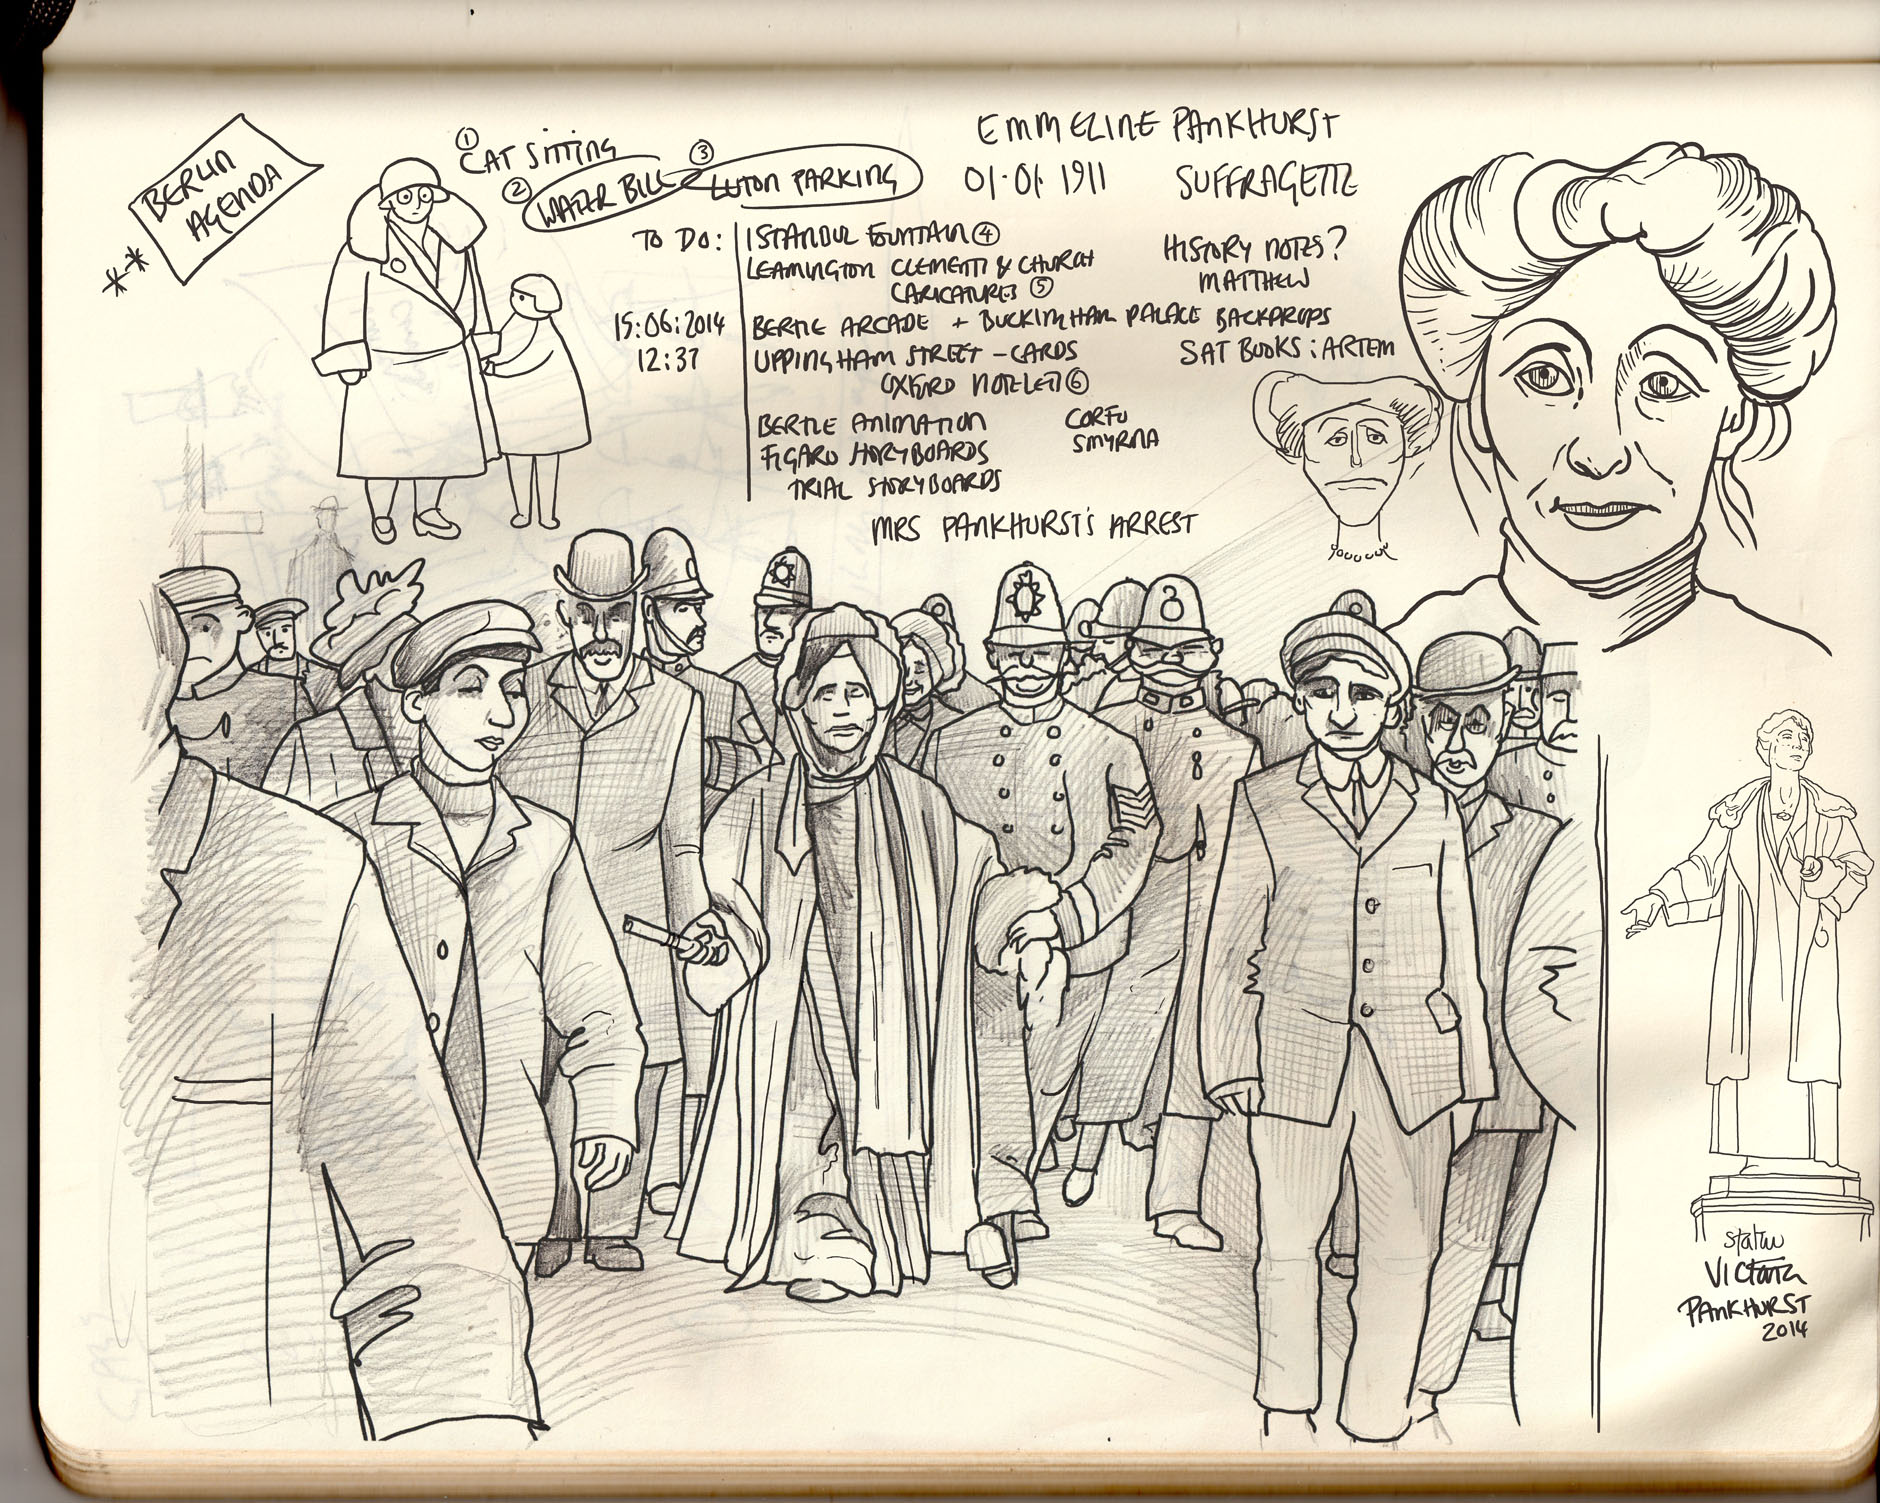 BERLIN
AGENDA
**
① CAT SITTING
② WATER BILL
③ LUTON PARKING
TO DO:
15:06:2014
12:37
ISTANBUL FOUNTAIN ④
LEAMINGTON CLEMENTI & CHURCH
CARICATURES ⑤
BERTIE ARCADE + BUCKINGHAM PALACE BACKDROPS
UPPINGHAM STREET - CARDS
OXFORD NOTELETS ⑥
BERTIE ANIMATION
FIGARO STORYBOARDS
TRIAL STORYBOARDS
CORFU
SMYRNA
EMMELINE PANKHURST
01.01.1911 SUFFRAGETTE
HISTORY NOTES?
MATTHEW
SAT BOOKS: ARTEM
MRS PANKHURST'S ARREST
statue
VICTORIA
PANKHURST
2014